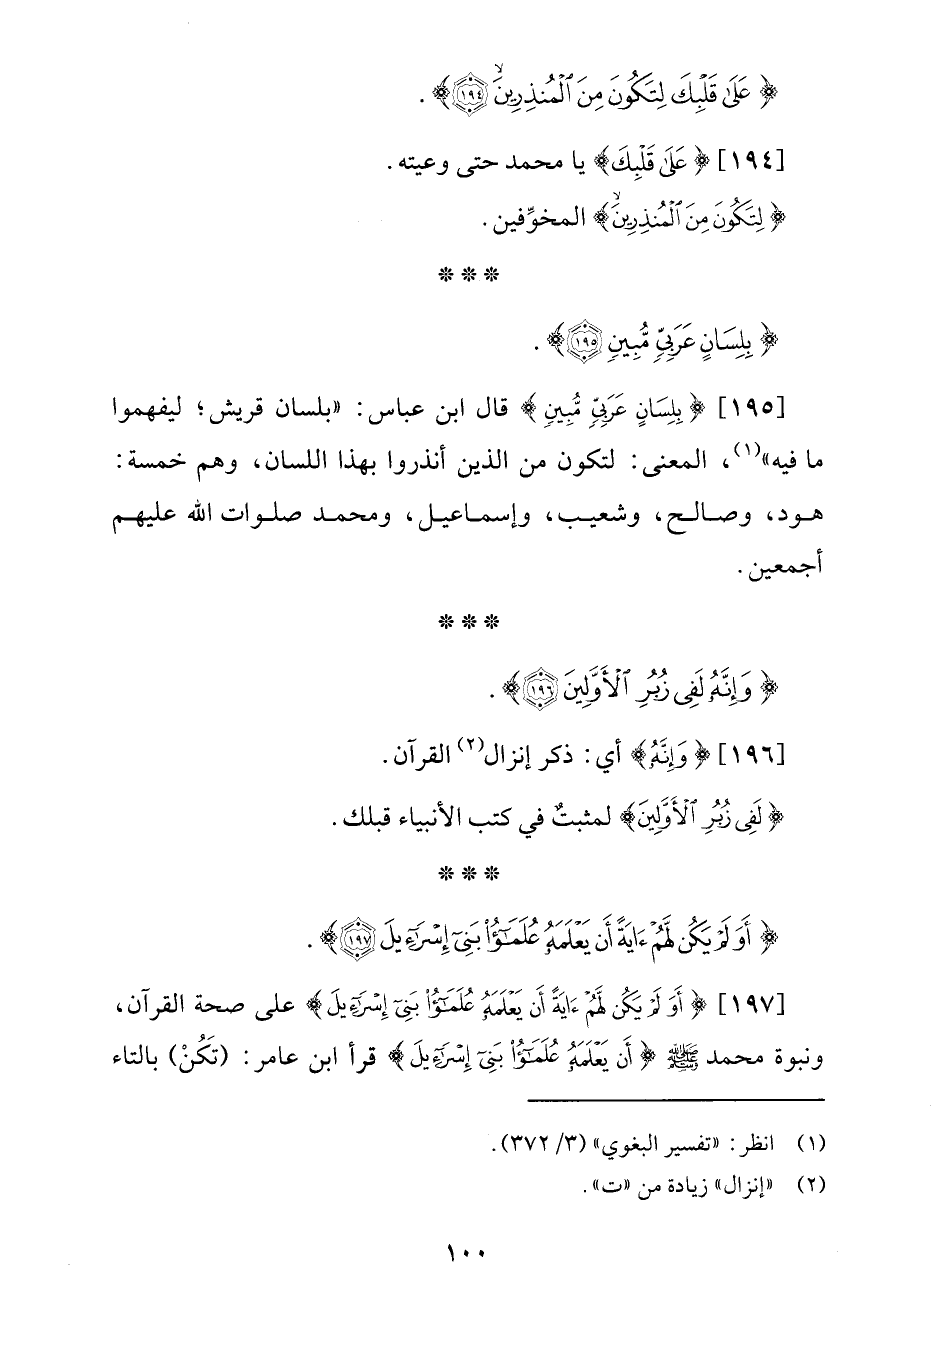 ﴿ عَلَىٰ قَلْبِكَ لِتَكُونَ مِنَ ٱلْمُنذِرِينَ ۙ ١٩٤﴾ .
[١٩٤] ﴿ عَلَىٰ قَلْبِكَ﴾ يا محمد حتى وعيته .
﴿ لِتَكُونَ مِنَ ٱلْمُنذِرِينَ ۙ﴾ المخوِّفين .
* * *
﴿ بِلِسَانٍ عَرَبِيٍّ مُّبِينٍ ١٩٥﴾ .
[١٩٥] ﴿ بِلِسَانٍ عَرَبِيٍّ مُّبِينٍ ﴾ قال ابن عباس: «بلسان قريش؛ ليفهموا
ما فيه»(١)، المعنى: لتكون من الذين أنذروا بهذا اللسان، وهم خمسة:
هود، وصالح، وشعيب، وإسماعيل، ومحمد صلوات الله عليهم
أجمعين .
* * *
﴿ وَإِنَّهُۥ لَفِى زُبُرِ ٱلْأَوَّلِينَ ١٩٦﴾ .
[١٩٦] ﴿ وَإِنَّهُۥ﴾ أي: ذكر إنزال(٢) القرآن .
﴿ لَفِى زُبُرِ ٱلْأَوَّلِينَ﴾ لمثبتٌ في كتب الأنبياء قبلك .
* * *
﴿ أَوَلَمْ يَكُن لَّهُمْ ءَايَةً أَن يَعْلَمَهُۥ عُلَمَـٰٓؤُا۟ بَنِىٓ إِسْرَٰٓءِيلَ ١٩٧﴾ .
[١٩٧] ﴿ أَوَلَمْ يَكُن لَّهُمْ ءَايَةً أَن يَعْلَمَهُۥ عُلَمَـٰٓؤُا۟ بَنِىٓ إِسْرَٰٓءِيلَ ﴾ على صحة القرآن،
ونبوة محمد ﷺ ﴿ أَن يَعْلَمَهُۥ عُلَمَـٰٓؤُا۟ بَنِىٓ إِسْرَٰٓءِيلَ ﴾ قرأ ابن عامر: (تَكُنْ) بالتاء
(١) انظر: «تفسير البغوي» (٣/ ٣٧٢).
(٢) «إنزال» زيادة من «ت».
١٠٠